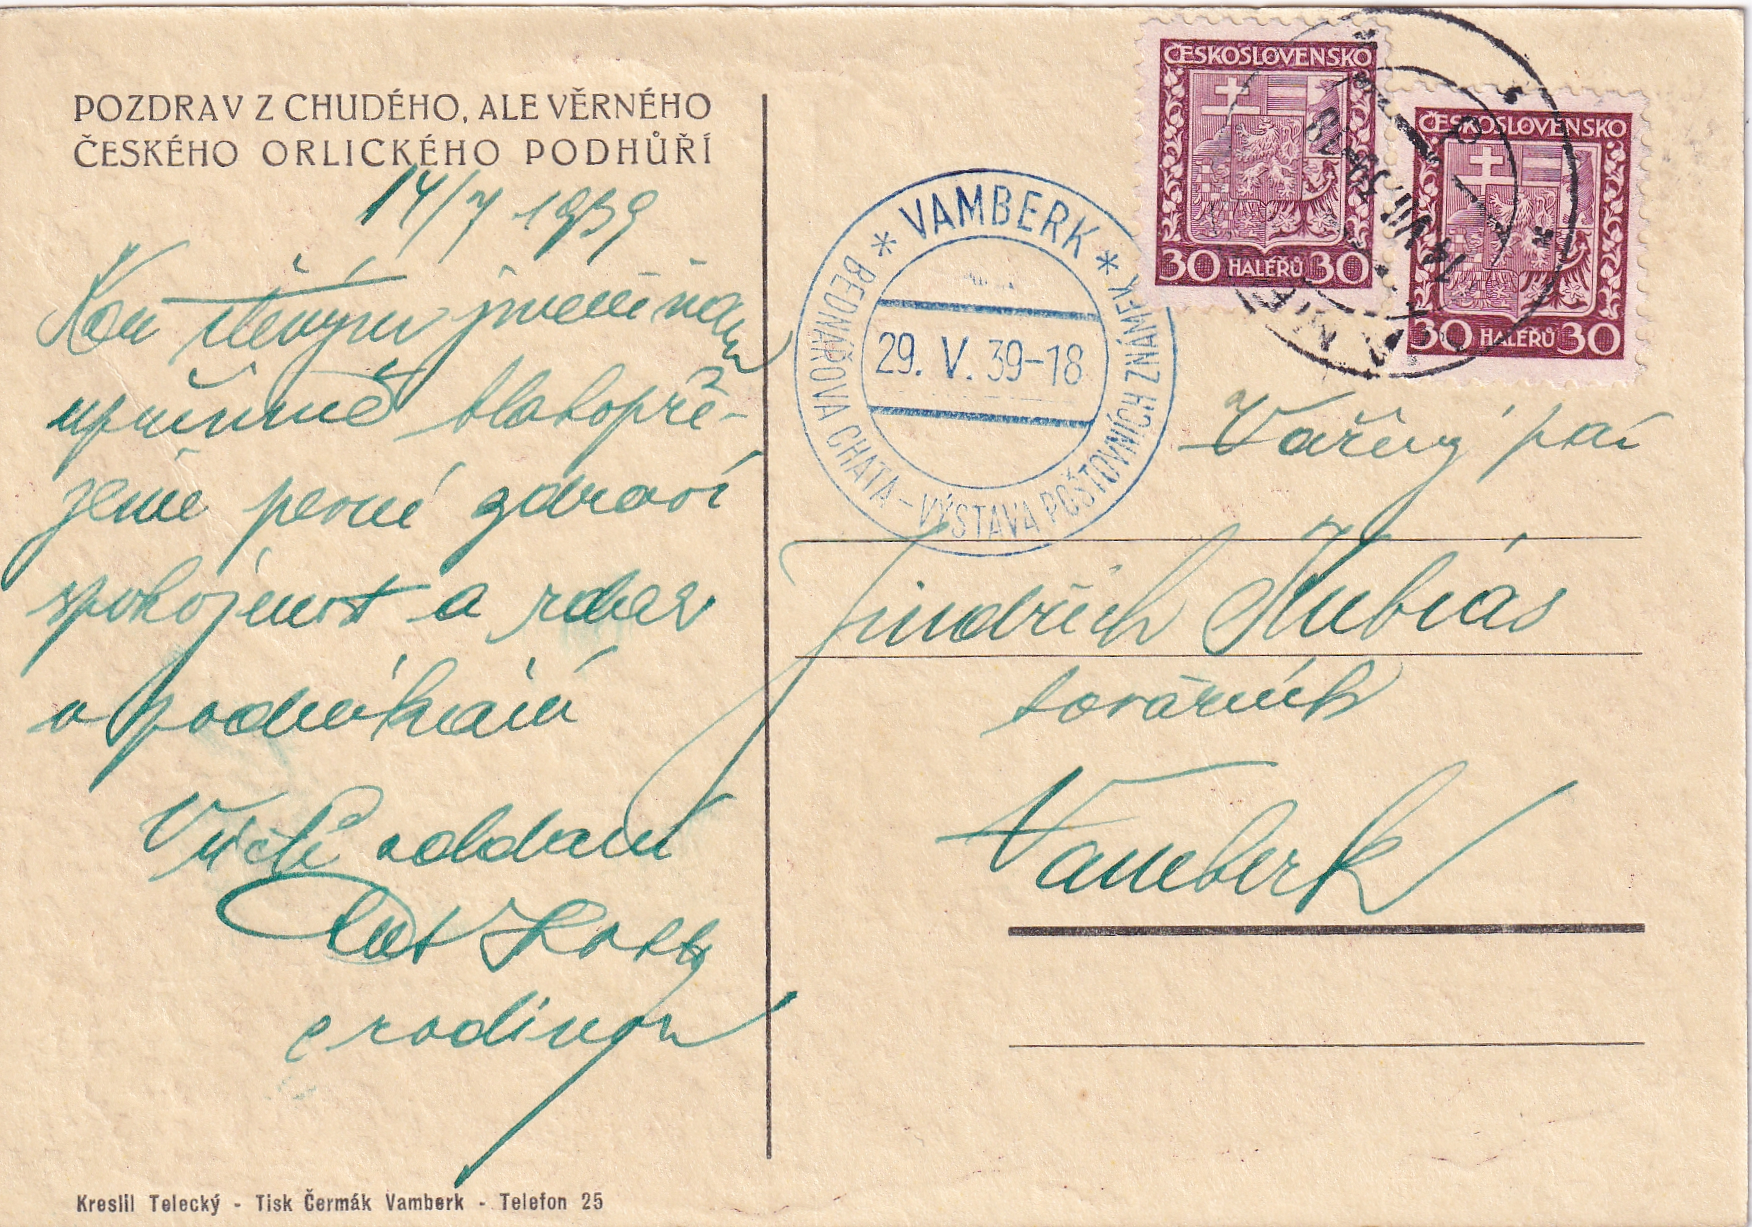 POZDRAV Z CHUDÉHO, ALE VĚRNÉHO
ČESKÉHO ORLICKÉHO PODHŮŘÍ
14/7 1939
upřímně blahopře-
jeme pevné zdraví
spokojenost a zdar
v podnikání
Vám oddaní
s rodinou
* VAMBERK *
29. V. 39-18
BEDNÁŘOVA CHATA - VÝSTAVA POŠTOVNÍCH ZNÁMEK
ČESKOSLOVENSKO
30 HALÉŘŮ 30
ČESKOSLOVENSKO
30 HALÉŘŮ 30
Vážený pan
Jindřich Kubias
továrník
Vamberk
Kreslil Telecký - Tisk Čermák Vamberk - Telefon 25